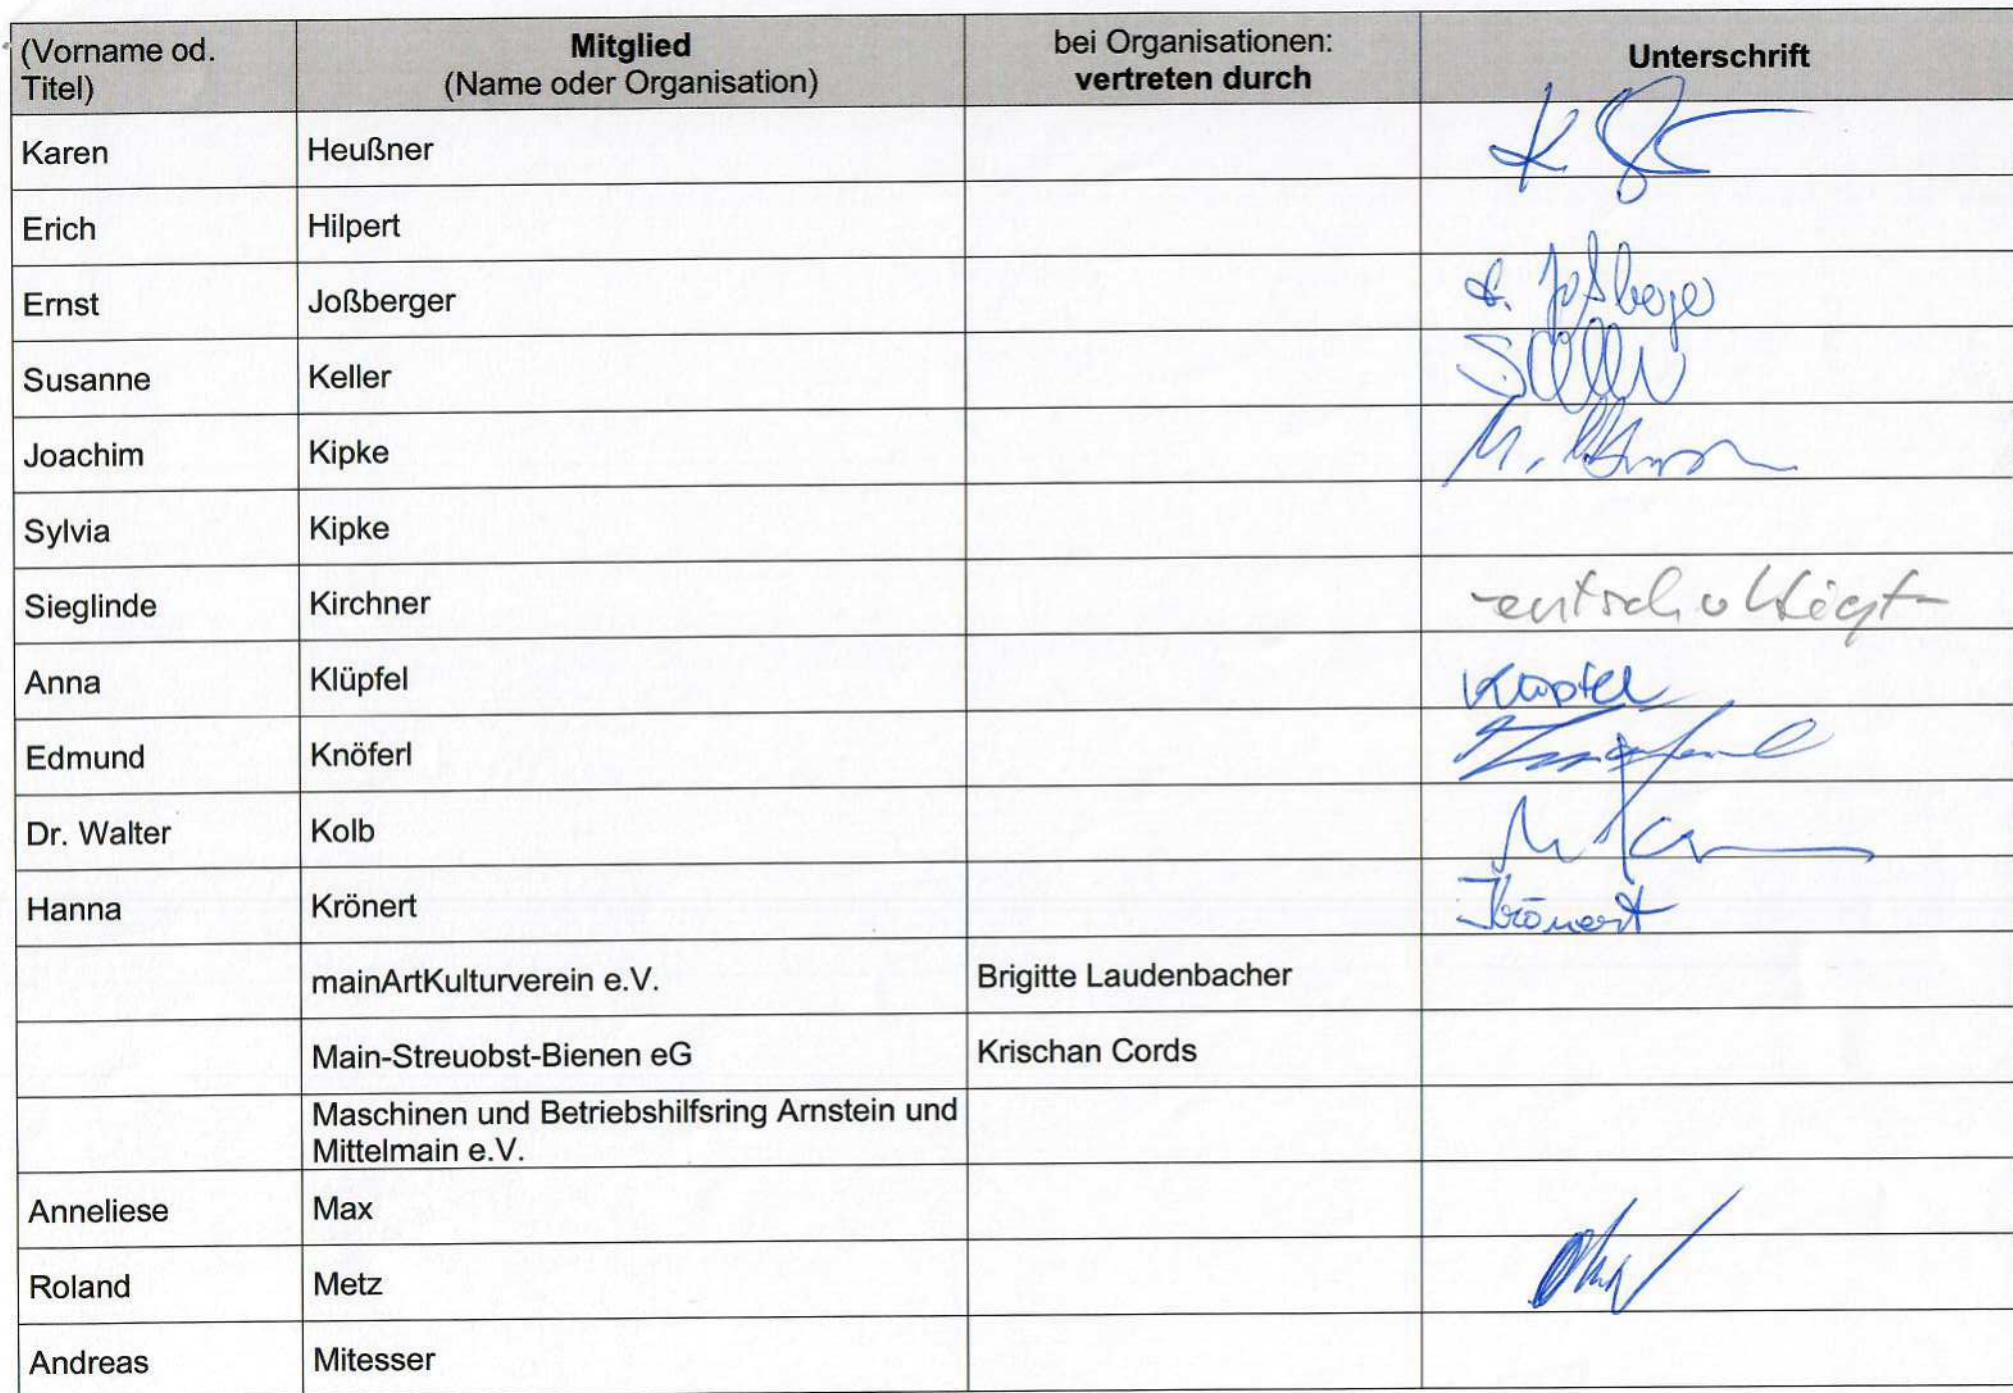 (Vorname od. Titel) Mitglied (Name oder Organisation) bei Organisationen: vertreten durch Unterschrift
Karen Heußner
Erich Hilpert
Ernst Joßberger E. Joßberger
Susanne Keller
Joachim Kipke
Sylvia Kipke
Sieglinde Kirchner -entschuldigt-
Anna Klüpfel Klüpfel
Edmund Knöferl
Dr. Walter Kolb
Hanna Krönert Krönert
mainArtKulturverein e.V. Brigitte Laudenbacher
Main-Streuobst-Bienen eG Krischan Cords
Maschinen und Betriebshilfsring Arnstein und
Mittelmain e.V.
Anneliese Max
Roland Metz
Andreas Mitesser